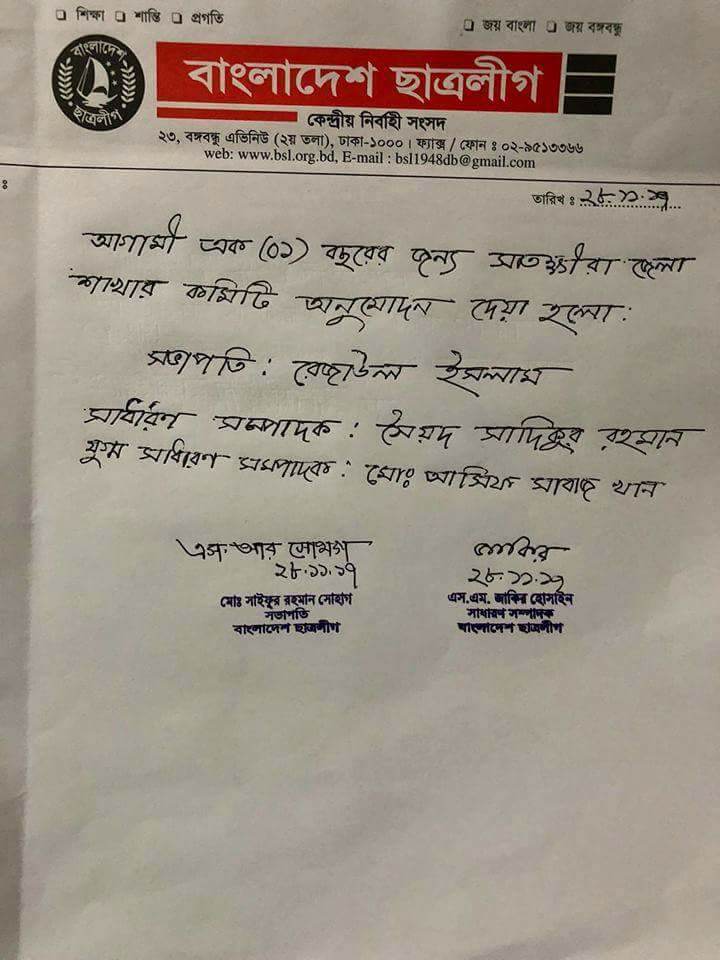 ❏ শিক্ষা ❏ শান্তি ❏ প্রগতি
❏ জয় বাংলা ❏ জয় বঙ্গবন্ধু
বাংলাদেশ
ছাত্রলীগ
বাংলাদেশ ছাত্রলীগ
কেন্দ্রীয় নির্বাহী সংসদ
২৩, বঙ্গবন্ধু এভিনিউ (২য় তলা), ঢাকা-১০০০। ফ্যাক্স / ফোন ঃ ০২-৯৫১৩৩৬৬
web: www.bsl.org.bd, E-mail : bsl1948db@gmail.com
ঃ
তারিখ ঃ ২৮.১১.১৭
আগামী এক (০১) বছরের জন্য সাতক্ষীরা জেলা
শাখার কমিটি অনুমোদন দেয়া হলো:
সভাপতি : রেজাউল ইসলাম
সাধারণ সম্পাদক : সৈয়দ সাদিকুর রহমান
যুগ্ম সাধারণ সম্পাদক : মোঃ আসিফ সাবাজ খান
এস.আর সোহাগ
২৮.১১.১৭
মোঃ সাইফুর রহমান সোহাগ
সভাপতি
বাংলাদেশ ছাত্রলীগ
জাকির
২৮.১১.১৭
এস.এম. জাকির হোসাইন
সাধারণ সম্পাদক
বাংলাদেশ ছাত্রলীগ